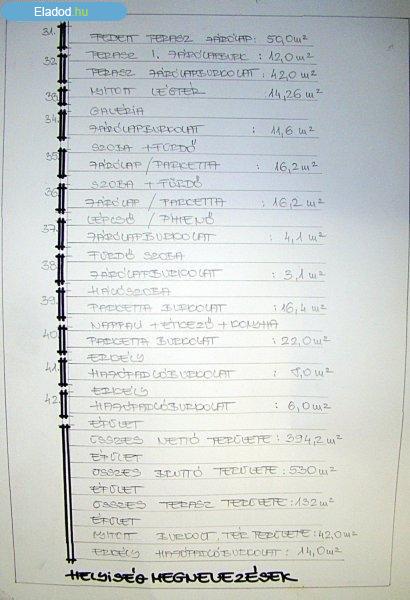 Eladod.hu
31.
FEDETT TERASZ JÁRÓLAP: 50,0 m²
32.
TERASZ I. JÁRÓLAPBURK : 12,0 m²
TERASZ JÁRÓLAPBURKOLAT : 42,0 m²
33.
NYITOTT LÉGTÉR 14,26 m²
34.
GALÉRIA
JÁRÓLAPBURKOLAT : 11,6 m²
35.
SZOBA + FÜRDŐ
JÁRÓLAP / PARKETTA : 16,2 m²
36.
SZOBA + FÜRDŐ
JÁRÓLAP / PARKETTA : 16,2 m²
37.
LÉPCSŐ / PIHENŐ
JÁRÓLAPBURKOLAT : 4,1 m²
38.
FÜRDŐ SZOBA
JÁRÓLAPBURKOLAT : 3,1 m²
39.
HÁLÓSZOBA
PARKETTA BURKOLAT : 16,4 m²
40.
NAPPALI + ÉTKEZŐ + KONYHA
PARKETTA BURKOLAT : 22,0 m²
41.
ERKÉLY
HAJÓPADLÓBURKOLAT : m²
42.
ERKÉLY
HAJÓPADLÓBURKOLAT : 6,0 m²
ÉPÜLET
ÖSSZES NETTÓ TERÜLETE : 394,2 m²
ÉPÜLET
ÖSSZES BRUTTÓ TERÜLETE : 530 m²
ÉPÜLET
ÖSSZES TERASZ TERÜLETE : 132 m²
ÉPÜLET
NYITOTT BURKOLT. TÉR TERÜLETE : 42,0 m²
ERKÉLY HAJÓPADLÓBURKOLAT : 14,0 m²
HELYISÉG MEGNEVEZÉSEK